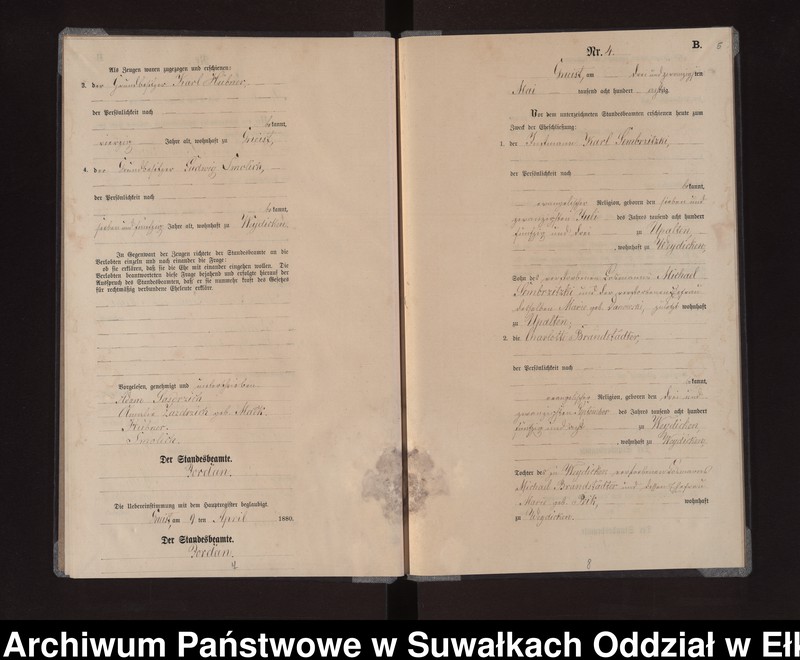 Als Zeugen waren zugezogen und erschienen:
3. der Grundbesitzer Karl Hübner,
der Persönlichkeit nach
bekannt,
vierzig Jahre alt, wohnhaft zu
4. der Grundbesitzer Ludwig Smolick,
der Persönlichkeit nach
bekannt,
sieben und fünfzig Jahre alt, wohnhaft zu Weydicken.
In Gegenwart der Zeugen richtete der Standesbeamte an die
Verlobten einzeln und nach einander die Frage:
ob sie erklären, daß sie die Ehe mit einander eingehen wollen. Die
Verlobten beantworteten diese Frage bejahend und erfolgte hierauf der
Ausspruch des Standesbeamten, daß er sie nunmehr kraft des Gesetzes
für rechtmäßig verbundene Eheleute erkläre.
Vorgelesen, genehmigt und unterschrieben
Adam
geb.
Hübner.
Smolick.
Der Standesbeamte.
Jordan.
Die Uebereinstimmung mit dem Hauptregister beglaubigt.
am 9 ten April 1880.
Der Standesbeamte.
Jordan.
Nr. 4.
B.
am drei und zwanzigsten
Mai tausend acht hundert achtzig.
Vor dem unterzeichneten Standesbeamten erschienen heute zum
Zweck der Eheschließung:
1. der Instmann Karl
der Persönlichkeit nach
bekannt,
evangelischer Religion, geboren den sieben und
zwanzigsten Juli des Jahres tausend acht hundert
fünfzig und drei zu Upalten,
, wohnhaft zu Weydicken,
Sohn des verstorbenen Michael
und der verstorbenen Ehefrau
desselben Marie geb. zuletzt wohnhaft
zu Upalten,
2. die Charlotte Brandstädter,
der Persönlichkeit nach
kannt,
evangelischer Religion, geboren den drei und
zwanzigsten des Jahres tausend acht hundert
fünfzig und zu Weydicken,
, wohnhaft zu Weydicken,
Tochter des zu Weydicken verstorbenen
Michael Brandstädter und dessen Ehefrau
Marie geb. wohnhaft
zu Weydicken.
8
Archiwum Państwowe w Suwałkach Oddział w Ełk